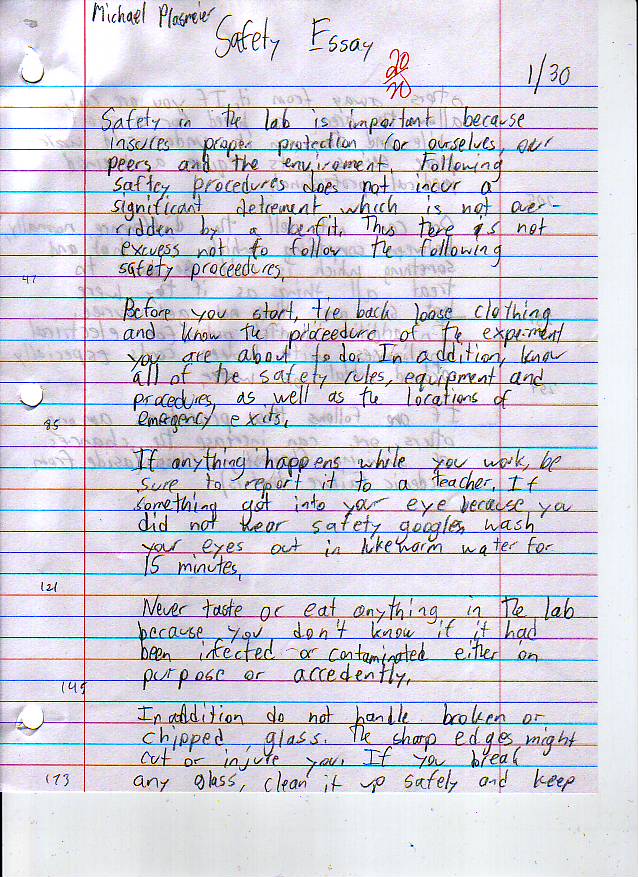 Michael Plasmeier
Safety Essay
20/20
1/30
Safety in the lab is important because
insures proper protection for ourselves, our
peers, and the enviroment. Following
saftey procedures does not incur a
significant detrement which is not over-
ridden by a benifit. Thus there is not
excuess not to follow the following
47 safety proceedures.
Before you start, tie back loose clothing
and know the proceedure of the experment
you are about to do. In addition, know
all of the safety rules, equipment and
procedures, as well as the locations of
85 emergency exits.
If anything happens while you work, be
sure to report it to a teacher. If
something got into your eye because you
did not wear safety googles, wash
your eyes out in lukewarm water for
15 minutes.
121
Never taste or eat anything in the lab
because you don't know if it had
been infected or contaminated either on
145 purpose or accedently.
In addition do not handle broken or
chipped glass. The sharp edges might
cut or injure you. If you break
173 any glass, clean it up safely and keep